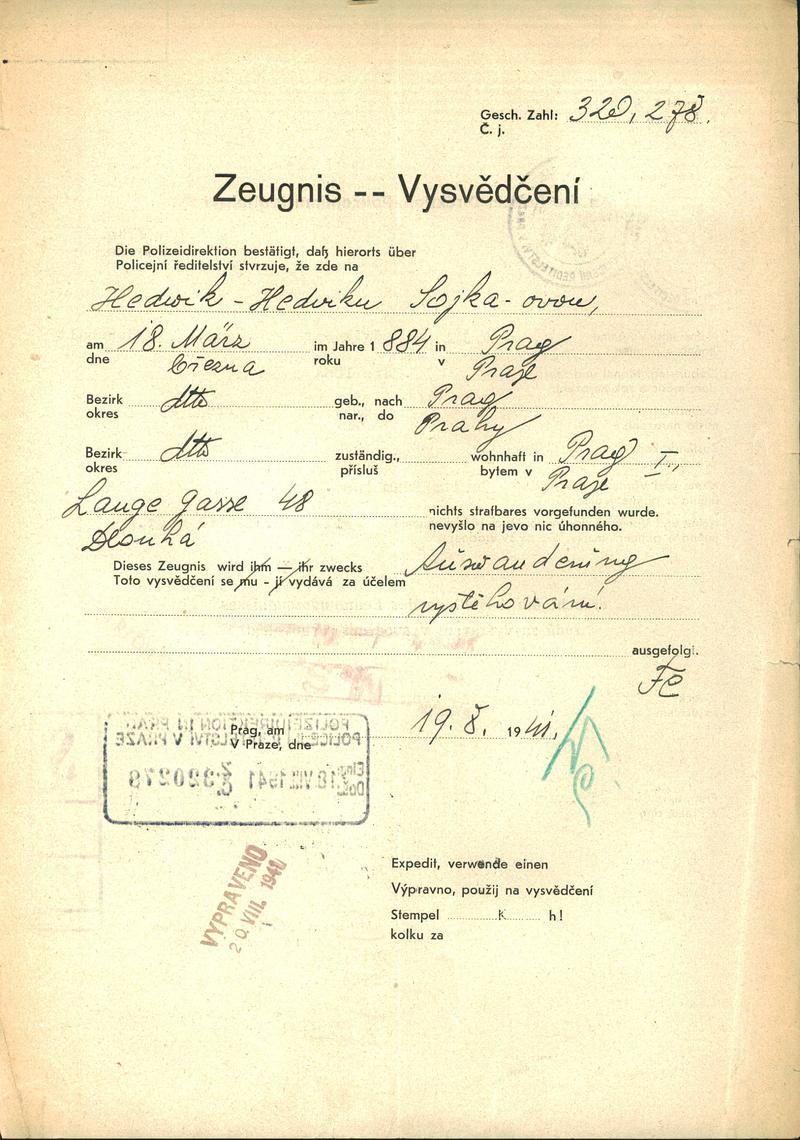 Gesch. Zahl: 320,278.
Č. j.
Zeugnis -- Vysvědčení
Die Polizeidirektion bestätigt, daß hierorts über
Policejní ředitelství stvrzuje, že zde na
Hedwik - Hedviku Sojka-ovou,
am 18. März im Jahre 1 884 in Prag
dne března roku v Praze
Bezirk dtto geb., nach Prag
okres nar., do Prahy
Bezirk dtto zuständig., wohnhaft in Prag I.,
okres přísluš bytem v Praze
Lange Gasse 48 nichts strafbares vorgefunden wurde.
Dlouhá nevyšlo na jevo nic úhonného.
Dieses Zeugnis wird ihm — ihr zwecks Auswanderung
Toto vysvědčení se mu - jí vydává za účelem
vystěhování.
ausgefolgt.
Prag, am 19.8. 1941.
V Praze, dne
POLIZEIDIREKTION IN PRAG
POLICEJNÍ ŘEDITELSTVÍ V PRAZE
Eing. 18.VIII.1941 Z. 320278
Došlo Č.
VYPRAVENO
20.VIII.1941
Expedit, verwende einen
Výpravno, použij na vysvědčení
Stempel K h!
kolku za